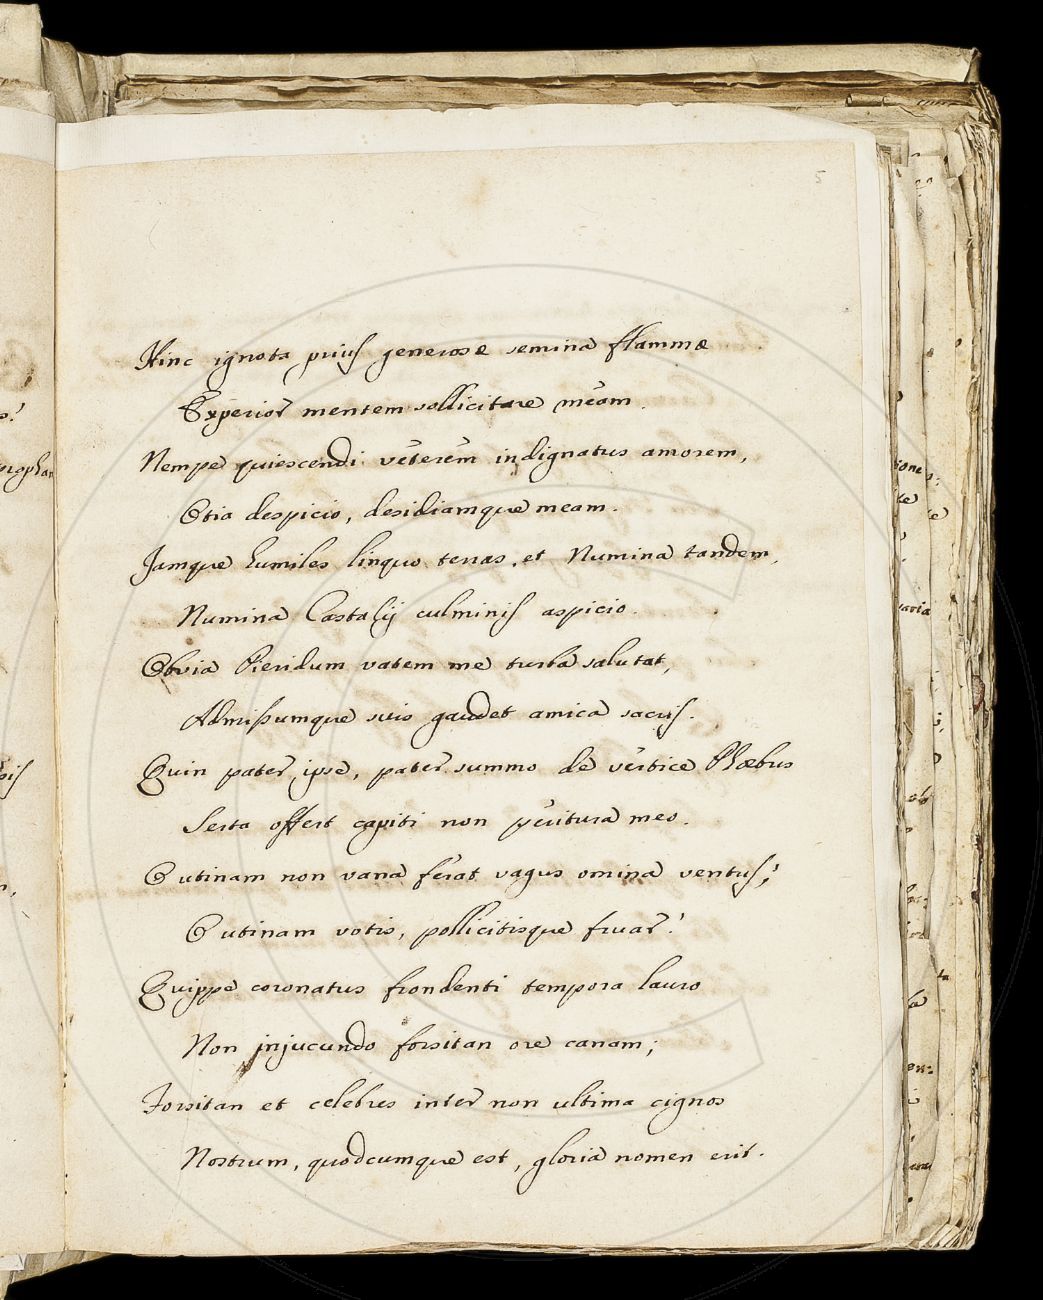 5
Hinc ignota prius generosæ semina flammæ
Experior mentem sollicitare meam.
Nempe quiescendi veterem indignatus amorem,
Otia despicio, desidiamque meam.
Jamque humiles linquo terras, et Numina tandem,
Numina Castalij culminis aspicio.
Obvia Pieridum vatem me turba salutat,
Admissumque suis gaudet amica sacris.
Quin pater ipse, pater summo de vertice Phœbus
Serta offert capiti non peritura meo.
O utinam non vana ferat vagus omina ventus!
O utinam votis, pollicitisque fruar!
Quippe coronatus frondenti tempora lauro
Non injucundo forsitan ore canam;
Forsitan et celebres inter non ultima cignos
Nostrum, quodcumque est, gloria nomen erit.